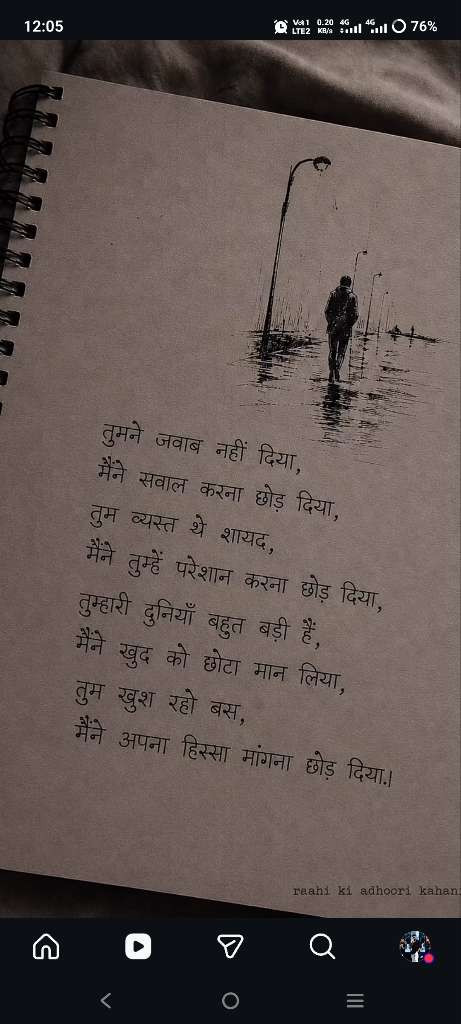 12:05
Vo1 1
LTE2
0.20
KB/s
4G
4G
76%
तुमने जवाब नहीं दिया,
मैंने सवाल करना छोड़ दिया,
तुम व्यस्त थे शायद,
मैंने तुम्हें परेशान करना छोड़ दिया,
तुम्हारी दुनियाँ बहुत बड़ी हैं,
मैंने खुद को छोटा मान लिया,
तुम खुश रहो बस,
मैंने अपना हिस्सा मांगना छोड़ दिया.।
raahi ki adhoori kahani